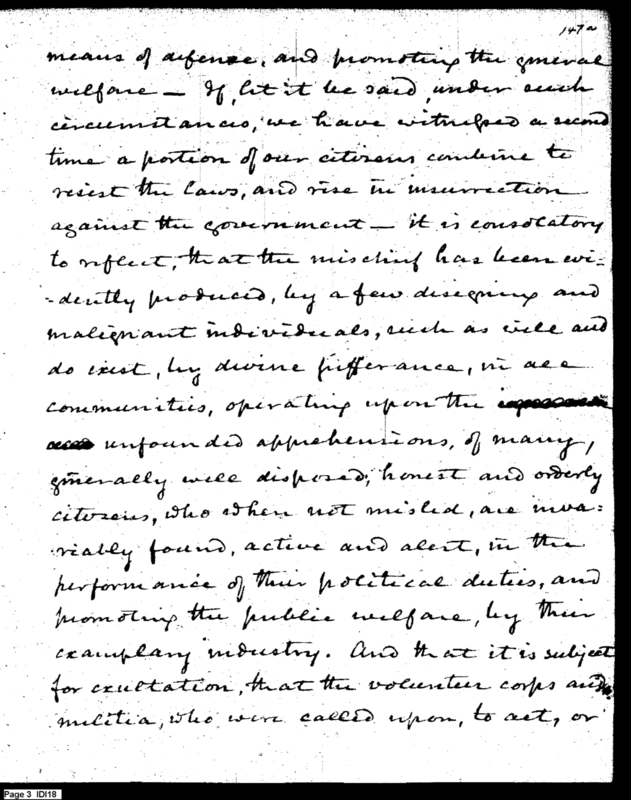 147a
means of defense, and promoting the general
welfare — If, let it be said, under such
circumstances, we have witnessed a second
time a portion of our citizens combine to
resist the laws, and rise in insurrection
against the government — it is consolatory
to reflect, that the mischief has been evi=
=dently produced, by a few designing and
malignant individuals, such as will and
do exist, by divine sufferance, in all
communities, operating upon the
unfounded apprehensions, of many,
generally well disposed, honest and orderly
citizens, who when not misled, are inva=
riably found, active and alert, in the
performance of their political duties, and
promoting the public welfare, by their
examplary industry. And that it is subject
for exultation, that the volunteer corps and
militia, who were called upon, to act, or
Page 3 IDI18